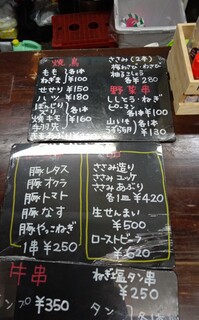 焼鳥
もも 各1本
ねぎま ¥100
せせり ¥150
ハツ ¥180
ぼんじり 各1本
焼キモ ¥160
手羽先
ささみ(2本)
梅わさび・わさび
柚子こしょう
各¥280
野菜串
ししとう・ねぎ
各1本 ¥100
山いも 各1本
うずら卵 ¥130
豚レタス
豚オクラ
豚トマト
豚なす
豚やっこねぎ
1串¥250
ささみ造り
ささみユッケ
ささみあぶり
各1皿¥420
生せんまい
¥500
ローストビーフ
¥620
牛串
¥350
ねぎ塩タン串
¥250
タン